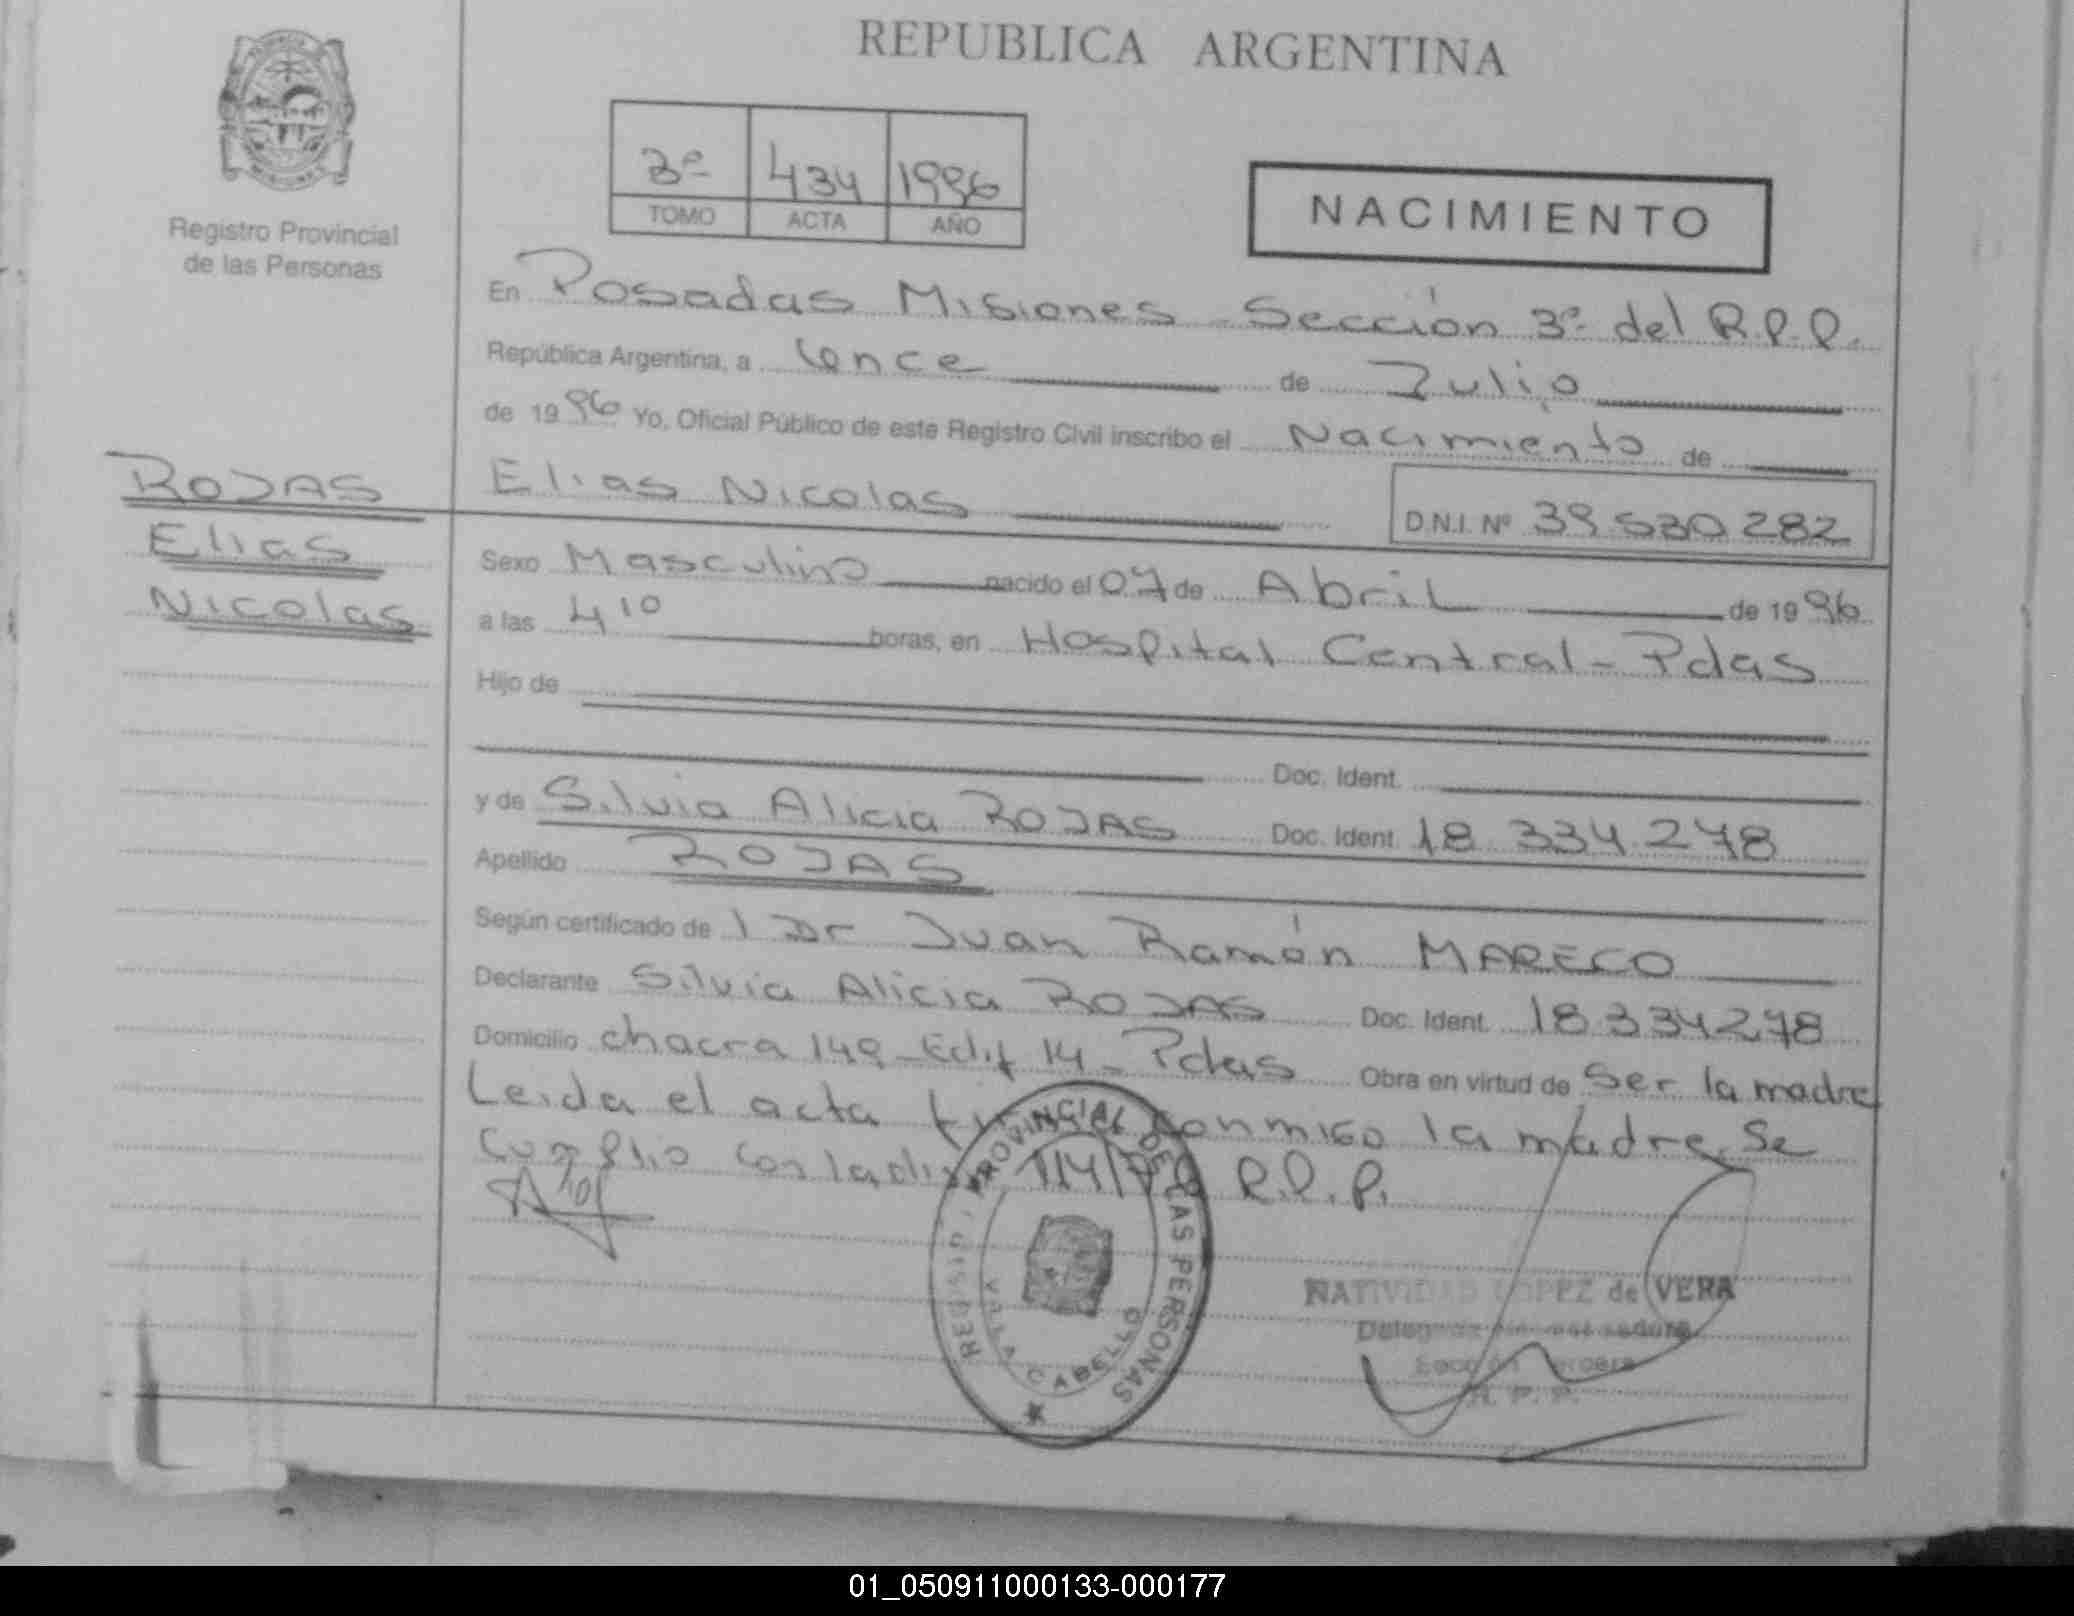 REPUBLICA ARGENTINA
Registro Provincial
de las Personas
3º 434 1996
TOMO ACTA AÑO
NACIMIENTO
En Posadas Misiones - Sección 3º del R.P.P.
República Argentina, a once de Julio
de 1996 Yo, Oficial Público de este Registro Civil inscribo el Nacimiento de
Elias Nicolas D.N.I. Nº 39.530.282
ROJAS
Elias
Nicolas
Sexo Masculino nacido el 07 de Abril de 1996
a las 4 10 horas, en Hospital Central - Pdas
Hijo de
Doc. Ident.
y de Silvia Alicia ROJAS Doc. Ident. 18.334.278
Apellido ROJAS
Según certificado de l Dr Juan Ramón MARECO
Declarante Silvia Alicia ROJAS Doc. Ident. 18.334.278
Domicilio chacra 149 - Edif 14 - Pdas Obra en virtud de Ser la madre
Leida el acta conmigo la madre. Se
Cumplio con la 114/ R.P.P.
REGISTRO PROVINCIAL DE LAS PERSONAS
VILLA CABELLO
NATIVIDAD LOPEZ de VERA
Sección Tercera
R. P. P.
01_050911000133-000177